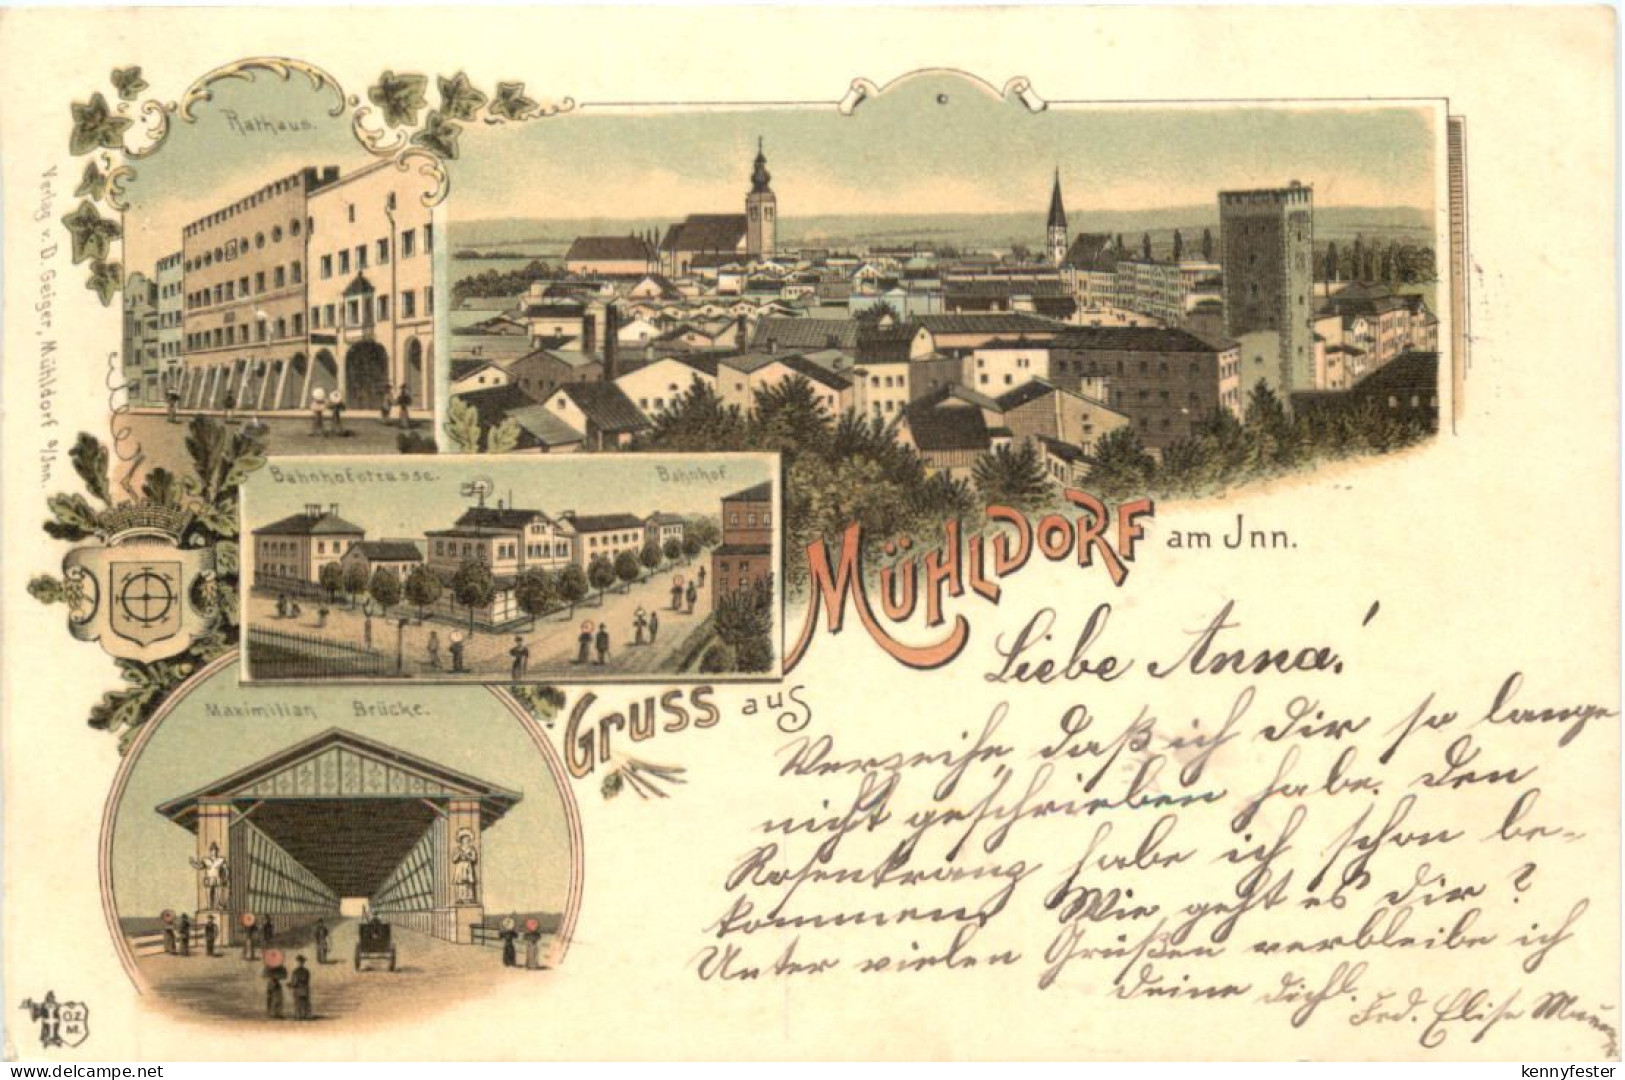 Rathaus.
Verlag v. D. Geiger, Mühldorf a/Jnn.
Bahnhofstrasse.
Bahnhof.
Maximilian Brücke.
Gruss aus
MÜHLDORF am Jnn.
Liebe Anna!
Verzeihe, daß ich Dir so lange
nicht geschrieben habe. Den
Rosenkranz habe ich schon be-
kommen. Wie geht es Dir?
Unter vielen Grüßen verbleibe ich
Deine Dichl.
Frd. Elise
O.Z.
M.
delcampe.net
kennyfester